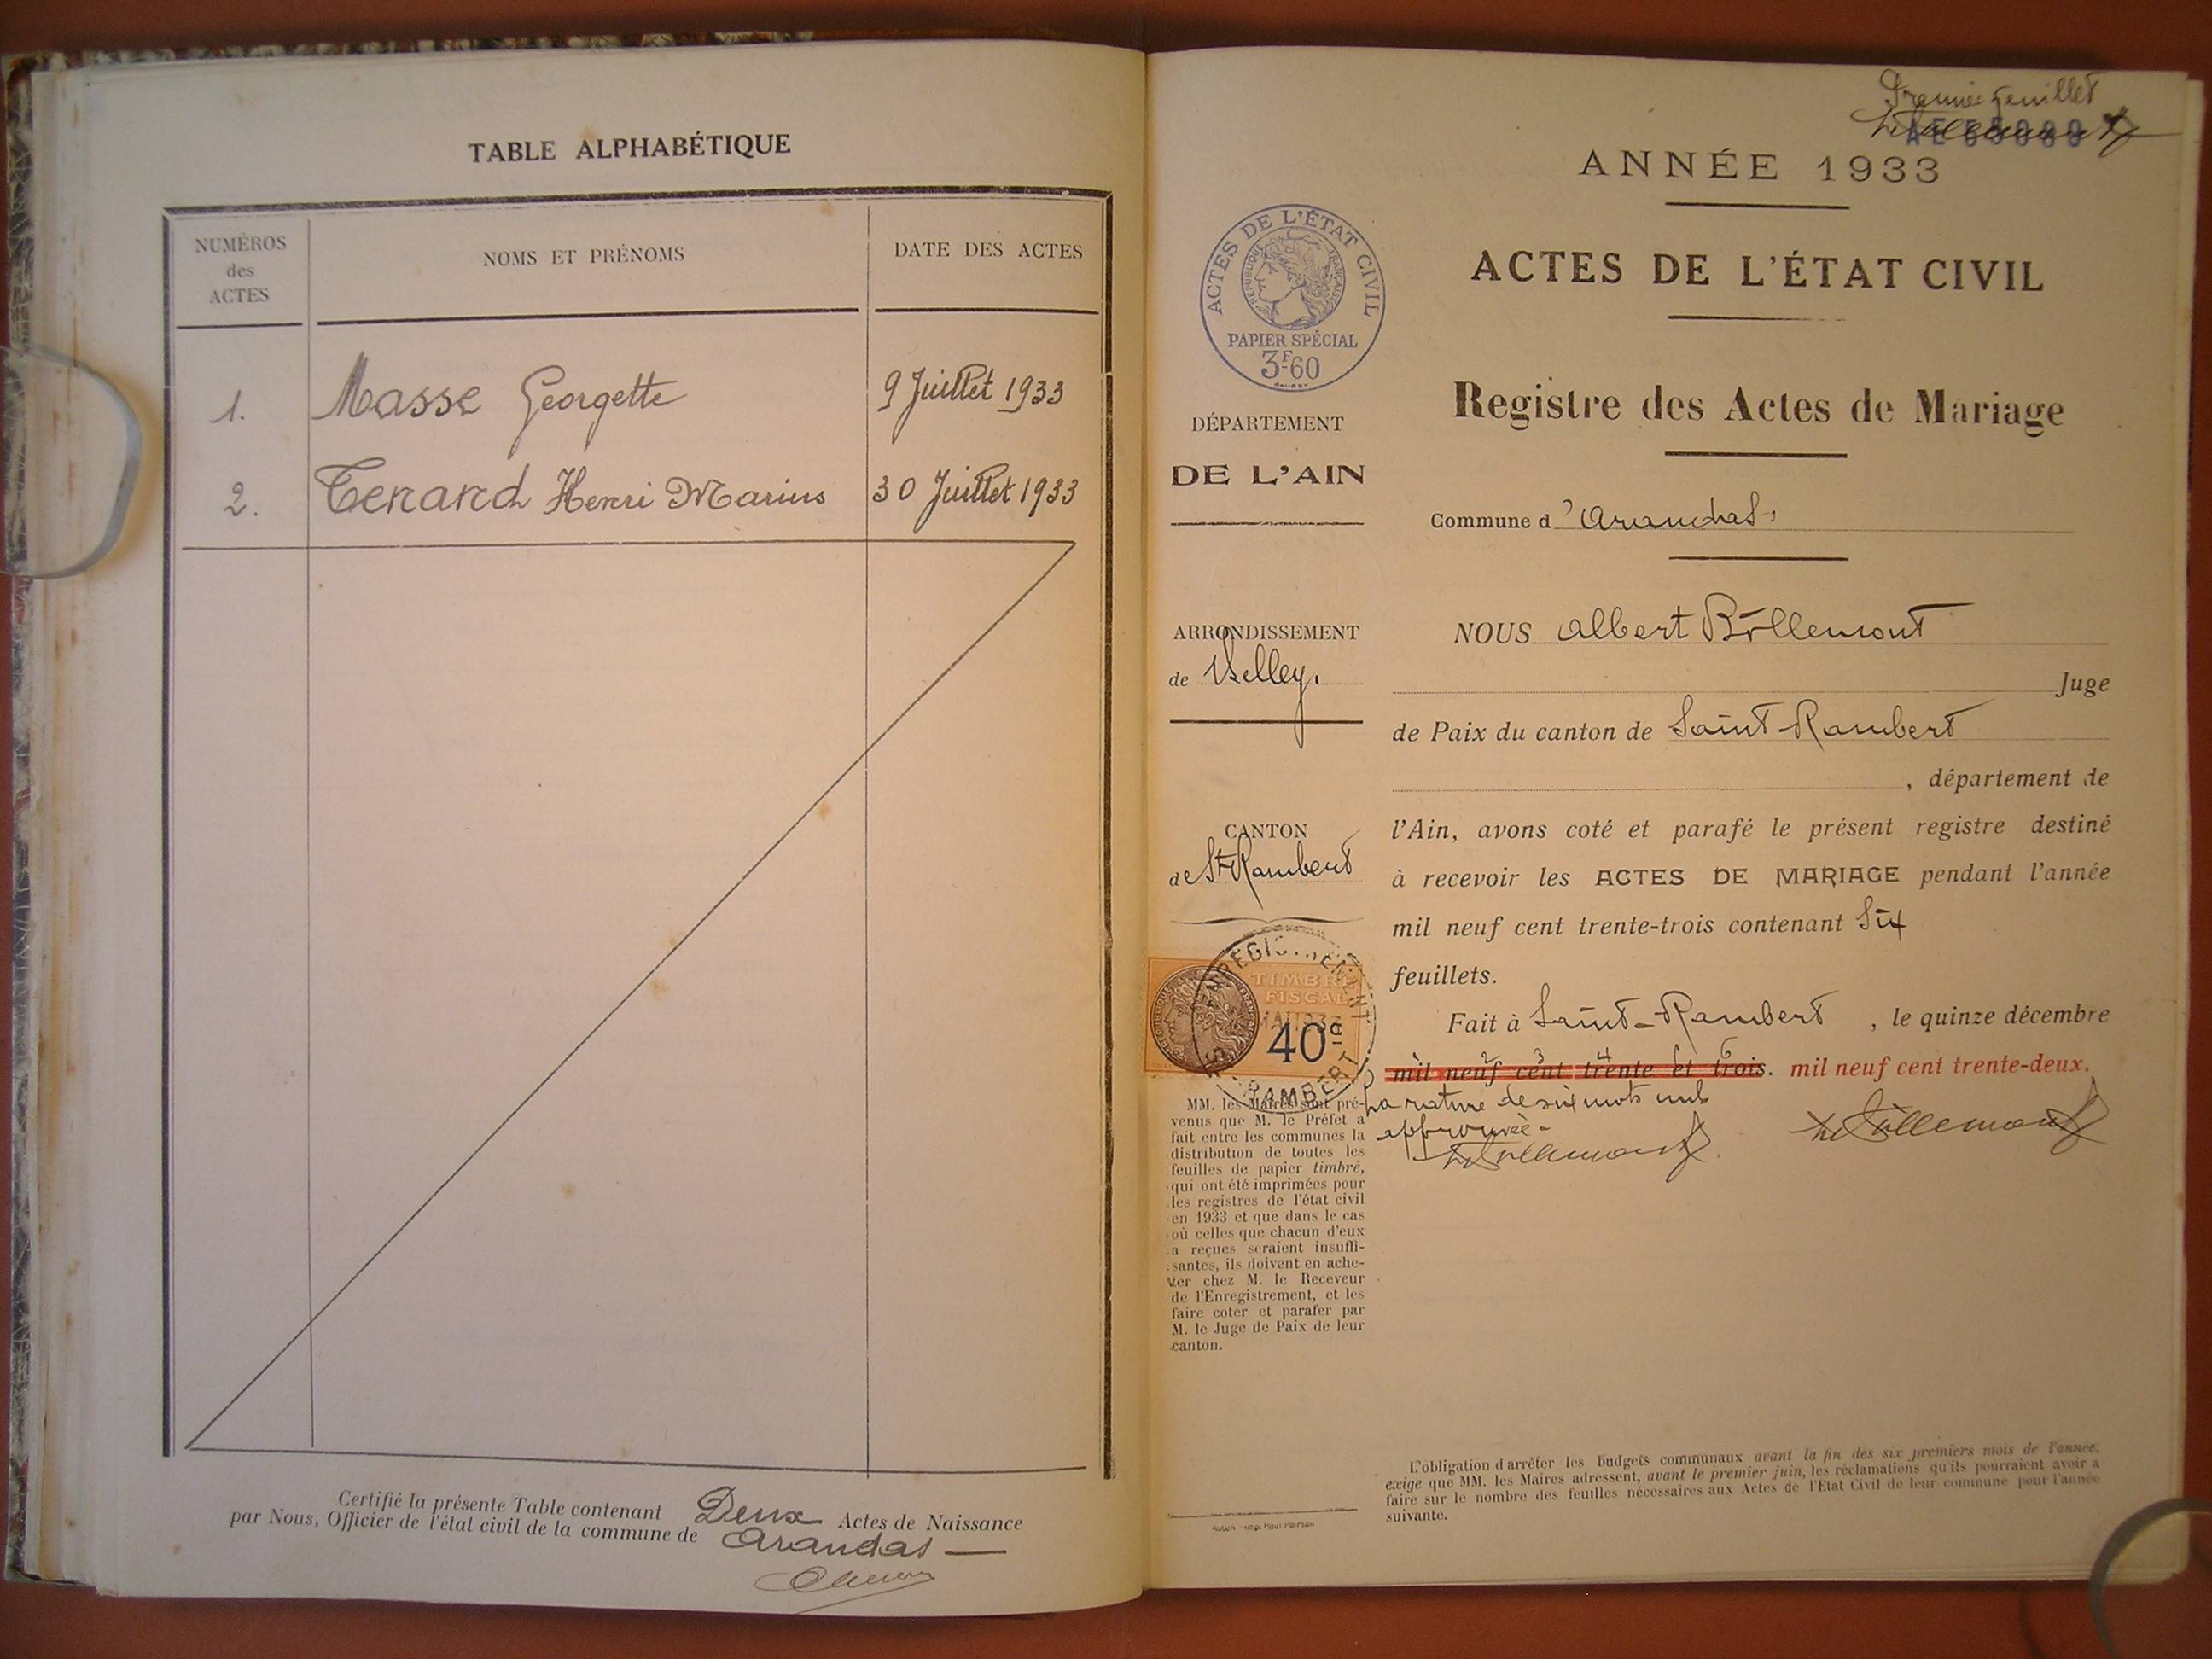 TABLE ALPHABÉTIQUE
NUMÉROS
des
ACTES
NOMS ET PRÉNOMS
DATE DES ACTES
1. Masse Georgette 9 Juillet 1933
2. Tenand Henri Marius 30 Juillet 1933
Certifié la présente Table contenant Deux Actes de Naissance
par Nous, Officier de l'état civil de la commune de Arandas
Premier feuillet
ANNÉE 1933
ACTES DE L'ÉTAT CIVIL
Registre des Actes de Mariage
Commune d'Arandas.
ACTES DE L'ÉTAT CIVIL
RÉPUBLIQUE FRANÇAISE
PAPIER SPÉCIAL
3F60
DÉPARTEMENT
DE L'AIN
ARRONDISSEMENT
de Belley.
CANTON
de St Rambert
TIMBRE
FISCAL
40c
RAMBERT
MM. les Maires sont pré-
venus que M. le Préfet a
fait entre les communes la
distribution de toutes les
feuilles de papier timbré,
qui ont été imprimées pour
les registres de l'état civil
en 1933 et que dans le cas
où celles que chacun d'eux
a reçues seraient insuffi-
santes, ils doivent en ache-
ter chez M. le Receveur
de l'Enregistrement, et les
faire coter et parafer par
M. le Juge de Paix de leur
canton.
NOUS Albert Billemont
Juge
de Paix du canton de Saint-Rambert
, département de
l'Ain, avons coté et parafé le présent registre destiné
à recevoir les ACTES DE MARIAGE pendant l'année
mil neuf cent trente-trois contenant Six
feuillets.
Fait à Saint-Rambert , le quinze décembre
mil neuf cent trente et trois. mil neuf cent trente-deux.
La rature de six mots nuls
approuvée-
L'obligation d'arrêter les budgets communaux avant la fin des six premiers mois de l'année,
exige que MM. les Maires adressent, avant le premier juin, les réclamations qu'ils pourraient avoir à
faire sur le nombre des feuilles nécessaires aux Actes de l'Etat Civil de leur commune pour l'année
suivante.